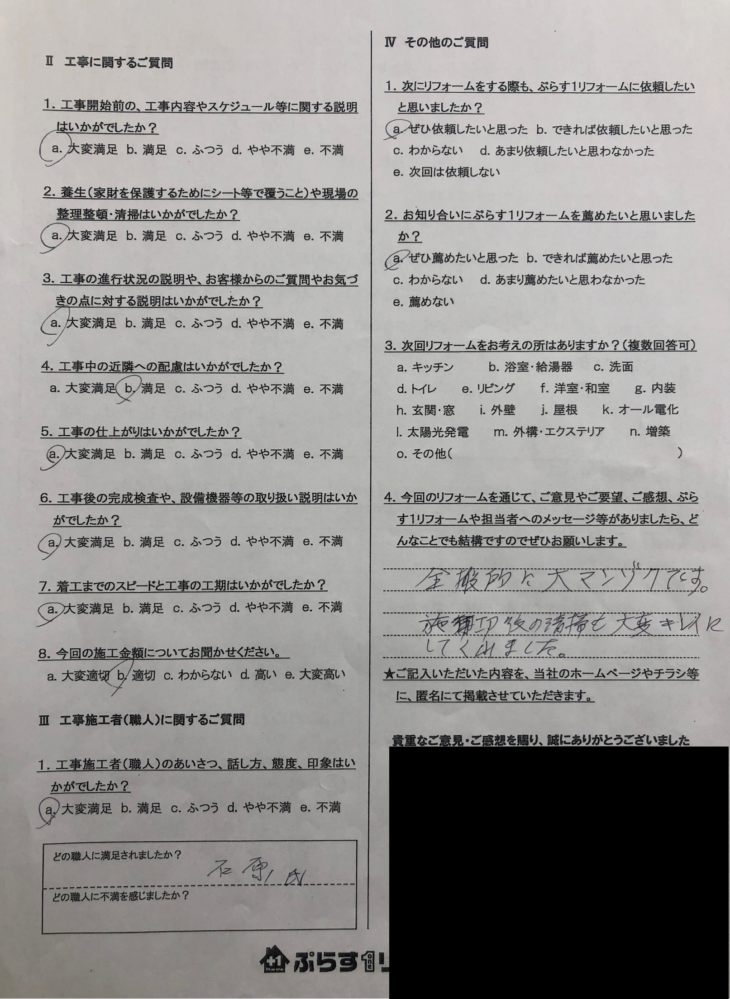 Ⅱ 工事に関するご質問
1. 工事開始前の、工事内容やスケジュール等に関する説明
はいかがでしたか?
a. 大変満足 b. 満足 c. ふつう d. やや不満 e. 不満
2. 養生(家財を保護するためにシート等で覆うこと)や現場の
整理整頓・清掃はいかがでしたか?
a. 大変満足 b. 満足 c. ふつう d. やや不満 e. 不満
3. 工事の進行状況の説明や、お客様からのご質問やお気づ
きの点に対する説明はいかがでしたか?
a. 大変満足 b. 満足 c. ふつう d. やや不満 e. 不満
4. 工事中の近隣への配慮はいかがでしたか?
a. 大変満足 b. 満足 c. ふつう d. やや不満 e. 不満
5. 工事の仕上がりはいかがでしたか?
a. 大変満足 b. 満足 c. ふつう d. やや不満 e. 不満
6. 工事後の完成検査や、設備機器等の取り扱い説明はいか
がでしたか?
a. 大変満足 b. 満足 c. ふつう d. やや不満 e. 不満
7. 着工までのスピードと工事の工期はいかがでしたか?
a. 大変満足 b. 満足 c. ふつう d. やや不満 e. 不満
8. 今回の施工金額についてお聞かせください。
a. 大変適切 b. 適切 c. わからない d. 高い e. 大変高い
Ⅲ 工事施工者(職人)に関するご質問
1. 工事施工者(職人)のあいさつ、話し方、態度、印象はい
かがでしたか?
a. 大変満足 b. 満足 c. ふつう d. やや不満 e. 不満
どの職人に満足されましたか?
石原氏
どの職人に不満を感じましたか?
Ⅳ その他のご質問
1. 次にリフォームをする際も、ぷらす1リフォームに依頼したい
と思いましたか?
a. ぜひ依頼したいと思った b. できれば依頼したいと思った
c. わからない d. あまり依頼したいと思わなかった
e. 次回は依頼しない
2. お知り合いにぷらす1リフォームを薦めたいと思いました
か?
a. ぜひ薦めたいと思った b. できれば薦めたいと思った
c. わからない d. あまり薦めたいと思わなかった
e. 薦めない
3. 次回リフォームをお考えの所はありますか?(複数回答可)
a. キッチン b. 浴室・給湯器 c. 洗面
d. トイレ e. リビング f. 洋室・和室 g. 内装
h. 玄関・窓 i. 外壁 j. 屋根 k. オール電化
l. 太陽光発電 m. 外構・エクステリア n. 増築
o. その他( )
4. 今回のリフォームを通じて、ご意見やご要望、ご感想、ぷら
す1リフォームや担当者へのメッセージ等がありましたら、ど
んなことでも結構ですのでぜひお願いします。
全般的に大マンゾクです。
施工後の清掃も大変キレイに
してくれました。
★ご記入いただいた内容を、当社のホームページやチラシ等
に、匿名にて掲載させていただきます。
貴重なご意見・ご感想を賜り、誠にありがとうございました
+1 ぷらす1リ